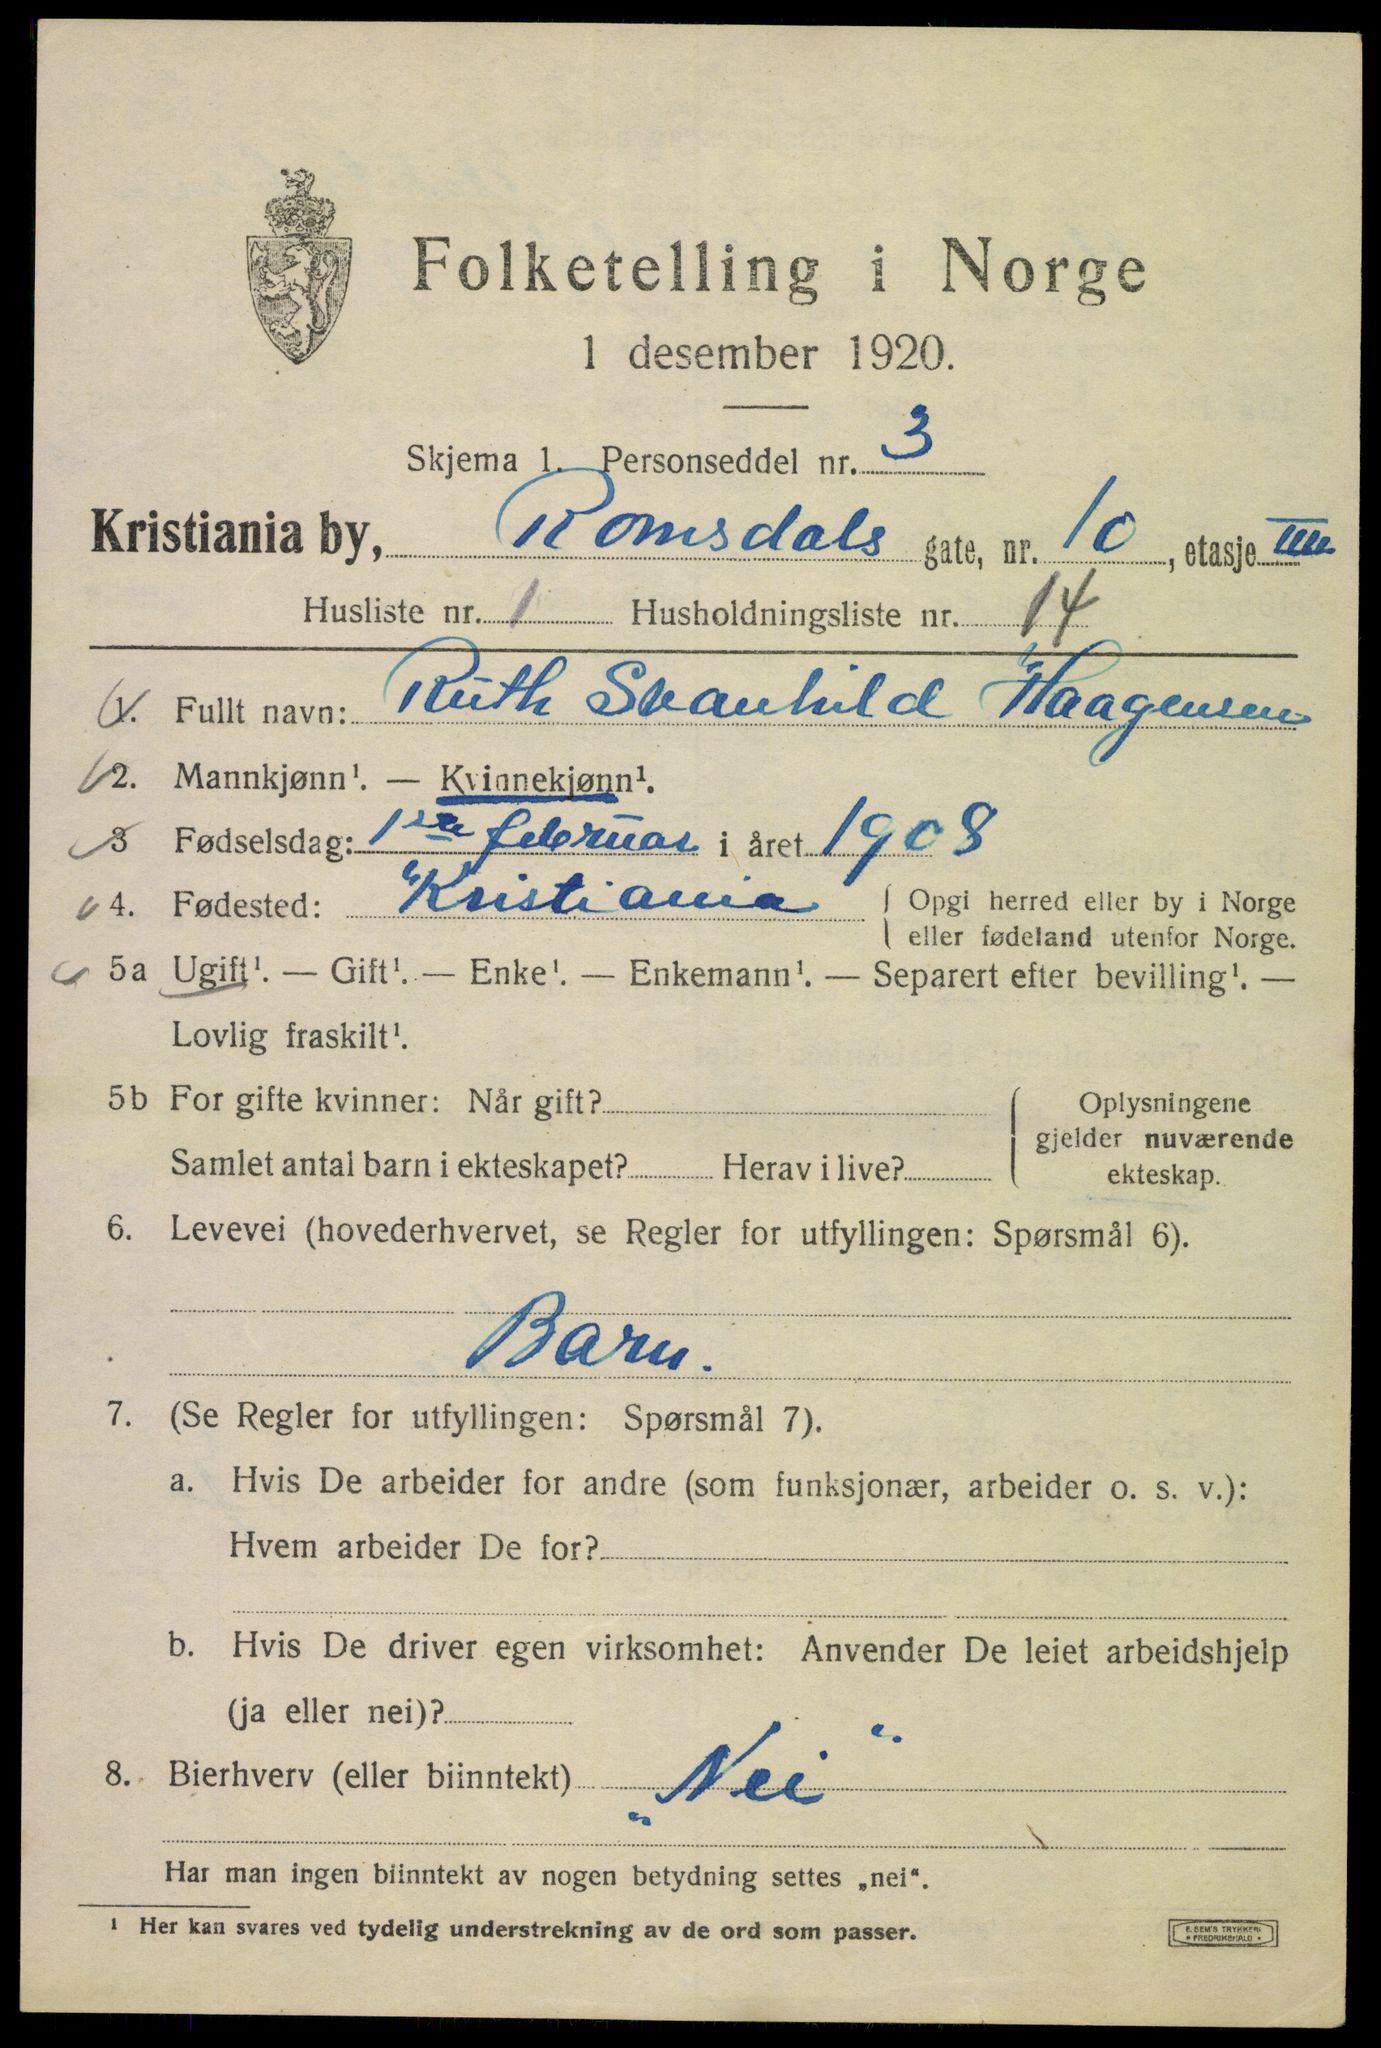 Folketelling i Norge
1 desember 1920.
Skjema 1. Personseddel nr. 3
Kristiania by, Romsdals gate, nr. 10, etasje IIII
Husliste nr. 1 Husholdningsliste nr. 14
1. Fullt navn: Ruth Svanhild Haagensen
2. Mannkjønn¹. — Kvinnekjønn¹.
3 Fødselsdag: 1ste februar i året 1908
4. Fødested: "Kristiania { Opgi herred eller by i Norge
eller fødeland utenfor Norge.
5a Ugift¹. — Gift¹. — Enke¹. — Enkemann¹. — Separert efter bevilling¹. —
Lovlig fraskilt¹.
5b For gifte kvinner: Når gift? { Oplysningene
gjelder nuværende
Samlet antal barn i ekteskapet? Herav i live? ekteskap.
6. Levevei (hovederhvervet, se Regler for utfyllingen: Spørsmål 6).
Barn.
7. (Se Regler for utfyllingen: Spørsmål 7).
a. Hvis De arbeider for andre (som funksjonær, arbeider o. s. v.):
Hvem arbeider De for?
b. Hvis De driver egen virksomhet: Anvender De leiet arbeidshjelp
(ja eller nei)?
8. Bierhverv (eller biinntekt) „Nei“
Har man ingen biinntekt av nogen betydning settes „nei“.
¹ Her kan svares ved tydelig understrekning av de ord som passer.
E. SEM'S TRYKKERI
• FREDRIKSHALD •